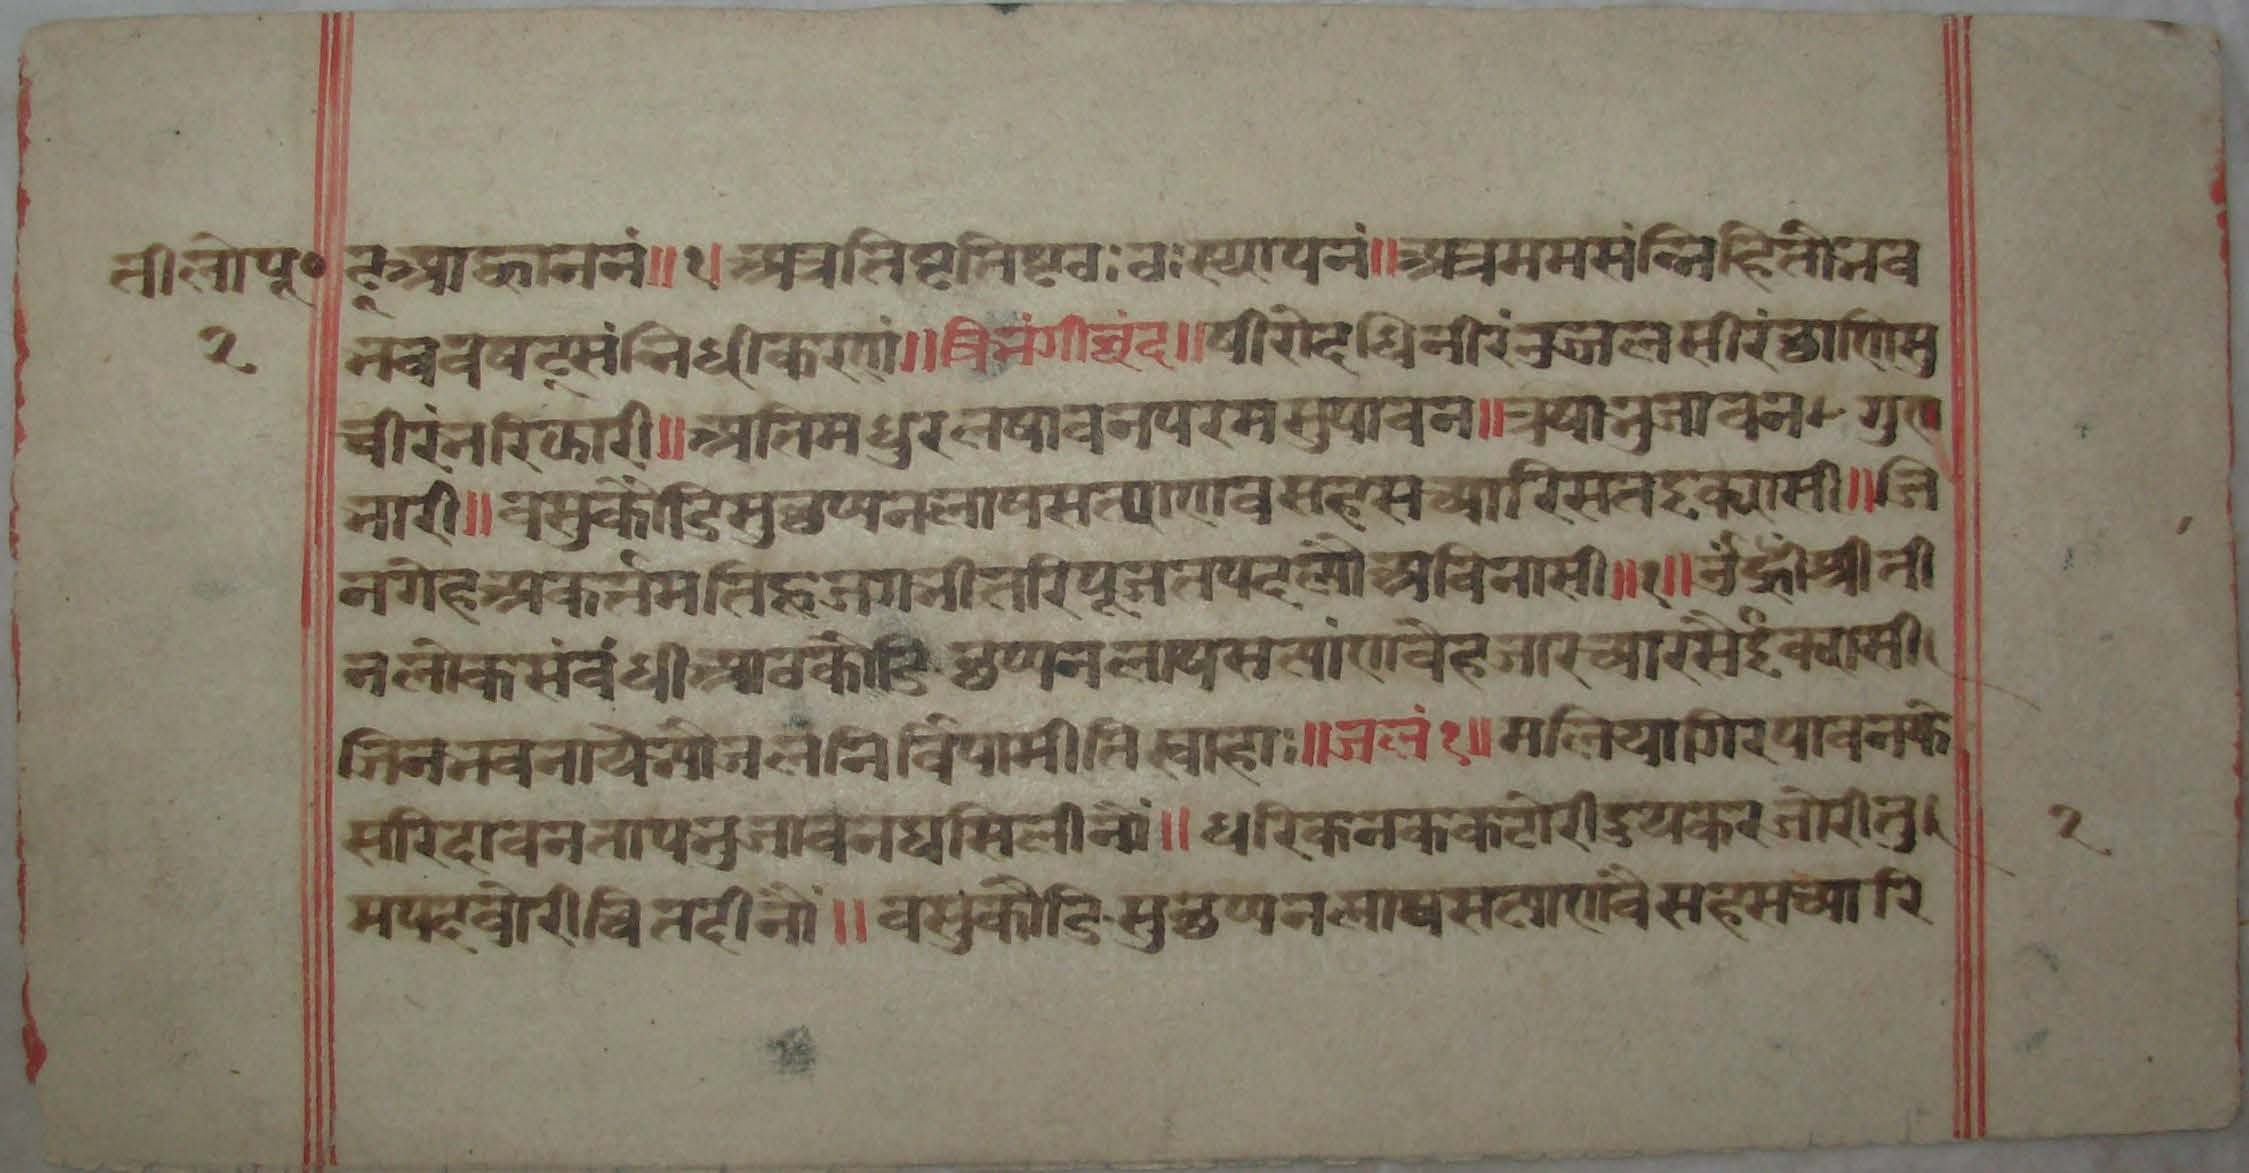 तीलोपू० ट्आह्वाननं॥१ अत्रतिष्टतिष्टठः ठः स्थापनं॥अत्रममसंन्निहितोभव
२ भववषट्संनिधीकरणं॥त्रिभंगीछंद॥षीरोदधिनीरंउज्जलसीरंछाणिसु
चीरंभरिझारी॥अतिमधुरलषावनपरमसुपावन॥त्रषाबुजावन गुण
भारी॥वसुकोटिसुछप्पनलाषसत्याणवसहसच्यारिसतइक्यासी॥जि
नगेहअकर्त्तमतिहुजगभीतरिपूजतपदल्यौअविनासी॥१॥ उँह्रींश्रीती
नलोकसंबंधीआठकोटि छप्पनलाषसत्यांणवेहजारच्यारसैइक्यासी
जिनभवनायेभ्योजलंनिर्विपामीतिस्वाहाः॥जलं१॥मलियागिरपावनके
सरिदावनतापबुजावनघसिलीनौं॥धरिकनककटोरीदुयकरजोरीतु २
मपदवोरीचितदीनौं॥वसुकोटिसुछप्पनलाषसत्याणवैसहसच्यारि